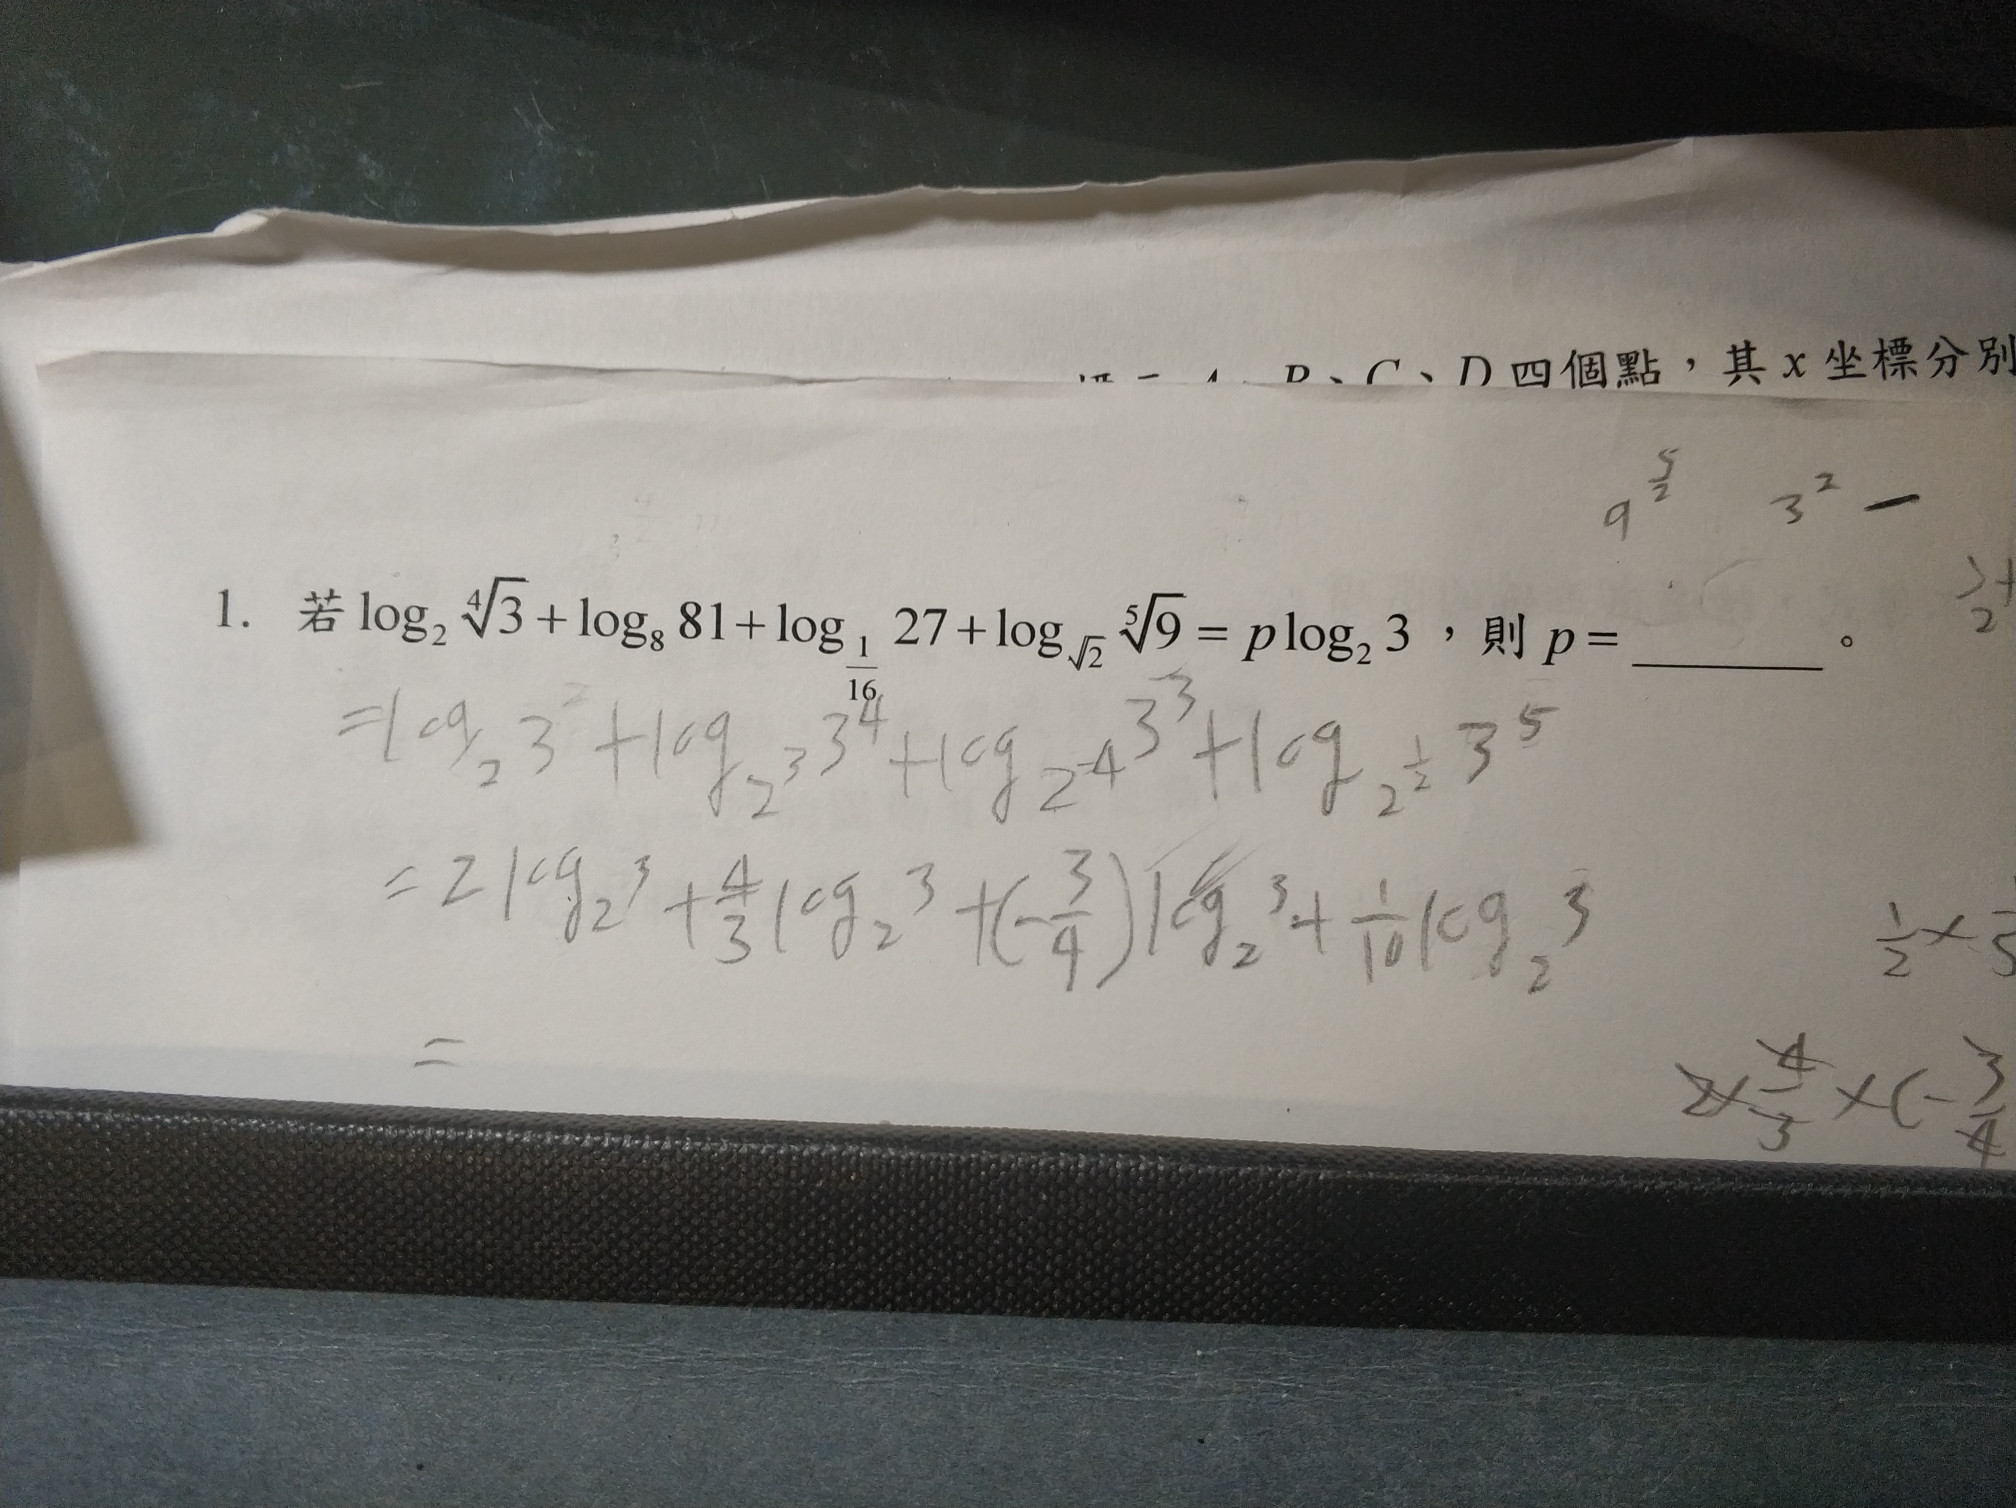 B、C、D 四個點，其 x 坐標分別
9^{5/2} 3² −
1. 若 log₂ ⁴√3 + log₈ 81 + log_{1/16} 27 + log_{√2} ⁵√9 = p log₂ 3，則 p = ______。
= log₂ 3² + log_{2³} 3⁴ + log_{2⁻⁴} 3³ + log_{2^{1/2}} 3⁵
= 2 log₂ 3 + 4/3 log₂ 3 + (−3/4) log₂ 3 + 1/10 log₂ 3
1/2 ×
=
2 × 4/3 × (−3/4